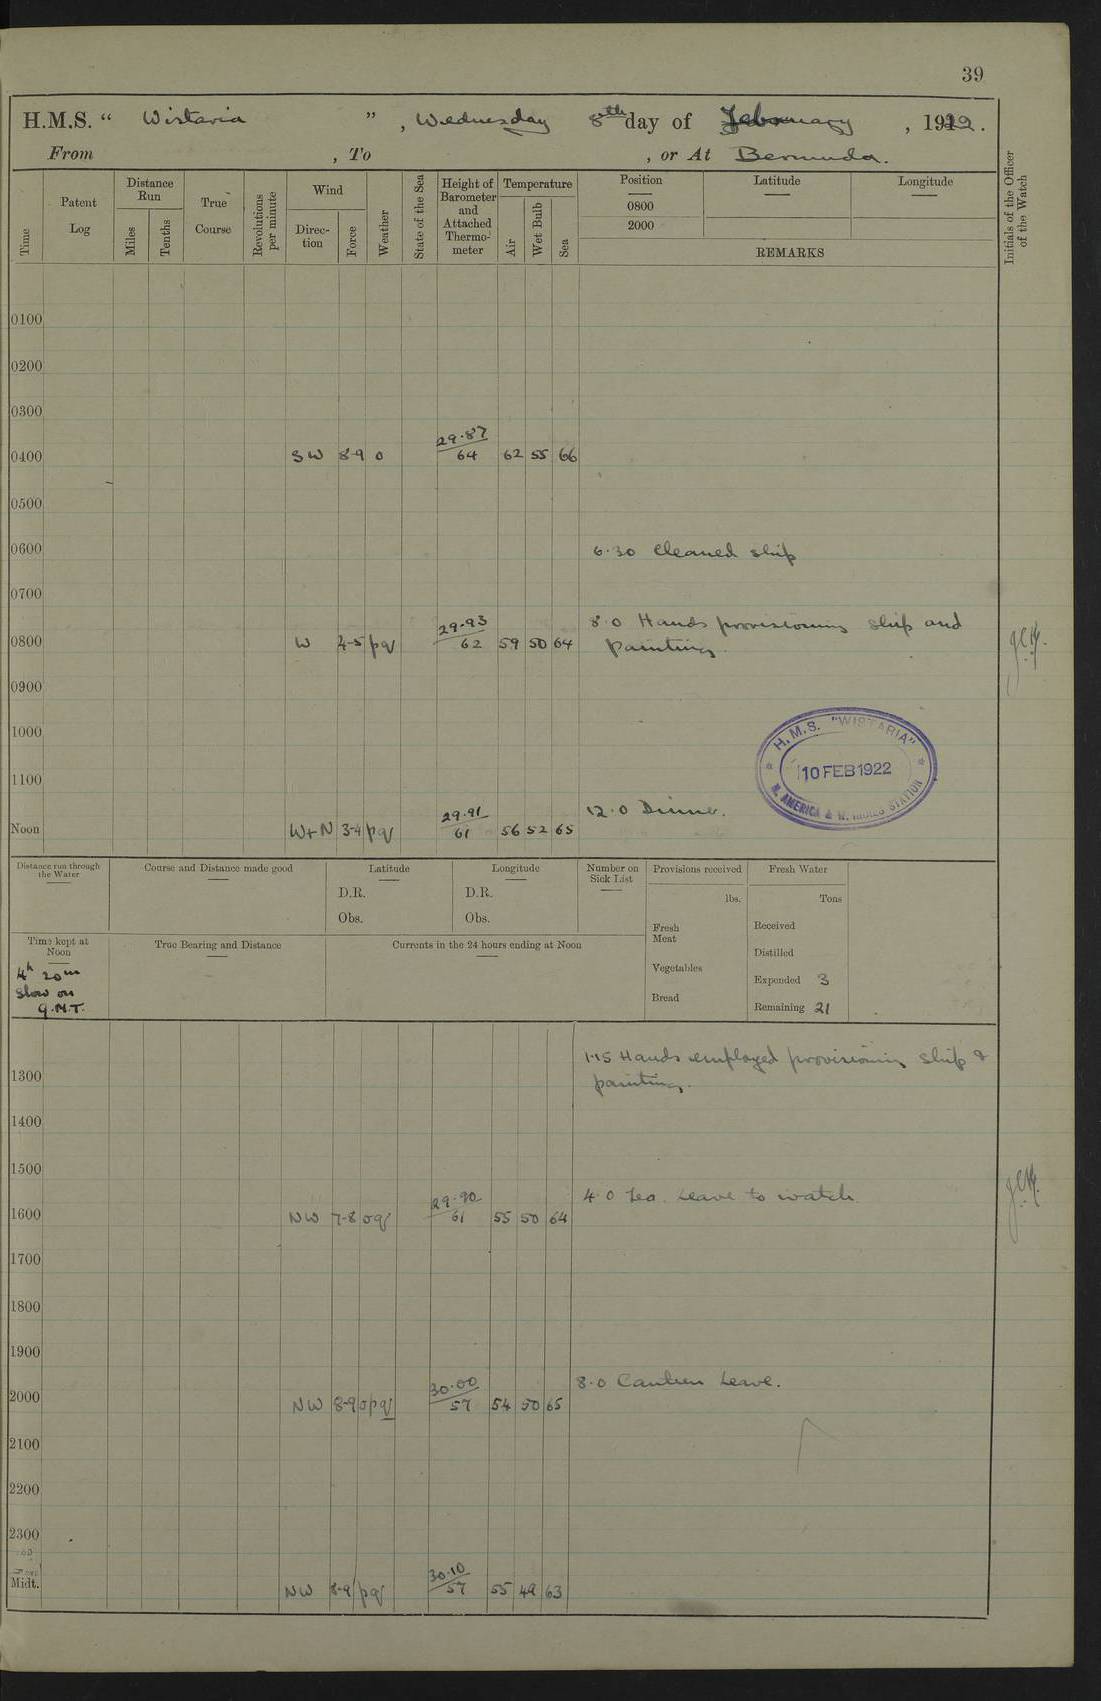 39
H.M.S. “ Wistaria ” , Wednesday 8th day of February , 1922.
From , To , or At Bermuda.
Time
Patent Log
Distance Run
Miles
Tenths
True Course
Revolutions per minute
Wind
Direc-tion
Force
Weather
State of the Sea
Height of Barometer and Attached Thermo-meter
Temperature
Air
Wet Bulb
Sea
Position
0800
2000
Latitude
Longitude
REMARKS
Initials of the Officer of the Watch
0100
0200
0300
29.87
0400 SW 8-9 o 64 62 55 66
0500
0600 6.30 Cleaned ship
0700
29.93 8.0 Hands provisioning ship and
0800 W 4-5 pq 62 59 50 64 painting.
0900
1000
H.M.S. "WISTARIA"
10 FEB 1922
N. AMERICA & W. INDIES STATION
1100
29.91 12.0 Dinner.
Noon W+N 3-4 pq 61 56 52 65
Distance run through the Water
Course and Distance made good
Latitude
D.R.
Obs.
Longitude
D.R.
Obs.
Number on Sick List
Provisions received
lbs.
Fresh Meat
Vegetables
Bread
Fresh Water
Tons
Received
Distilled
Expended 3
Remaining 21
Time kept at Noon
4h 20m
Slow on
G.M.T.
True Bearing and Distance
Currents in the 24 hours ending at Noon
1.15 Hands employed provisioning ship &
1300 painting.
1400
1500
29.90 4.0 Tea. Leave to watch
1600 NW 7-8 oq 61 55 50 64
1700
1800
1900
30.00 8.0 Canteen Leave.
2000 NW 8-9 opq 57 54 50 65
2100
2200
2300
30.10
Midt. NW 8-9 pq 57 55 49 63